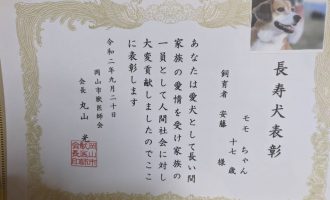 長寿犬表彰
モモ ちゃん
十七 歳
飼育者 安藤 様
あなたは愛犬として長い間
家族の愛情を受け家族の
一員として人間社会に対し
大変貢献しましたのでここ
に表彰します
令和二年九月二十日
岡山市獣医師会
会長 丸山
岡山市
獣医師
会長印